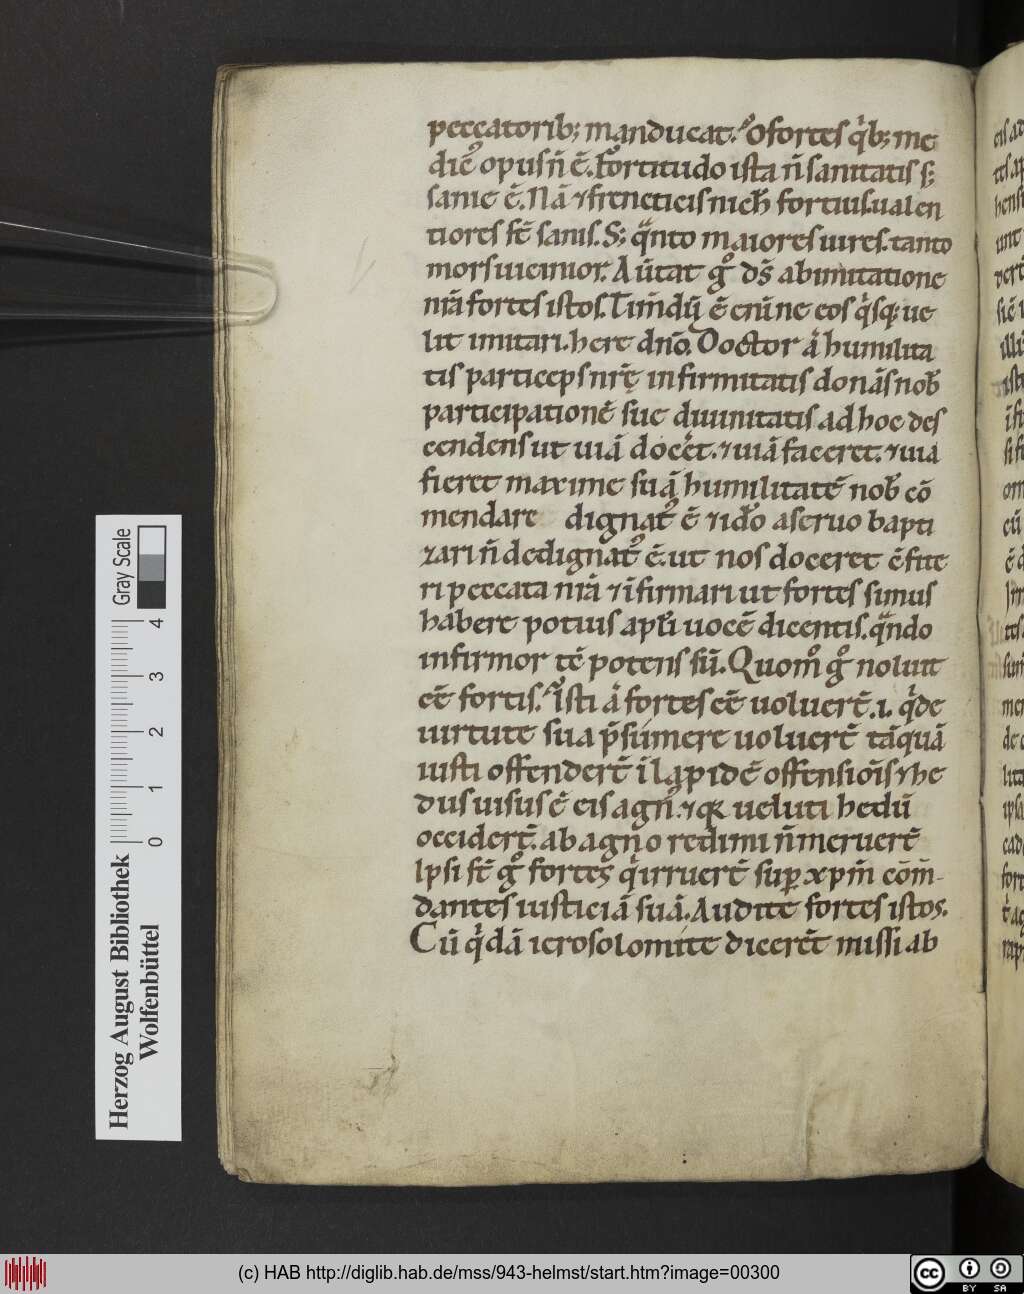 peccatorib; manducat. O fortes q̇b; me
dic̄ opus n̄ ē. Fortitudo ista n̄ sanitatis s;
sanie ē. Nā ⁊ freneticis nich̄ fortius. ualen
tiores st̄ sanis. S; q̃nto maiores uires. tanto
mors uicinior. Aūtat gͦ ds̄ ab imitatione
nr̄a fortes istos. Tim̄dū ē enī ne eos q̇sq; ue
lit imitari. here dn̄o. Doctor ȧ humilita
tis particeps nr̄ę infirmitatis donās nob̄
participationē sue diuinitatis ad hoc des
cendens ut uiā docēt. ⁊ uiā faceret. ⁊ uia
fieret maxime suā humilitatē nob̄ cō
mendare dignat᷒ ē ⁊ idͦo a seruo bapti
zari n̄ dedignat᷒ ē. ut nos doceret c̄fite
ri peccata nr̄a ⁊ īfirmari ut fortes simus
habere potius apl̄i uocē dicentis. q̃ndo
infirmor tc̄ potens sū. Quom̊ gͦ noluit
eē fortis. Isti ȧ fortes eē uoluer̄t. i. q̇ de
uirtute sua p̄sumere uoluer̄t tāquā
iusti offender̄t ī lapidē offensiōis ⁊ he
dus uisus ē eis agn᷒. ⁊ q̇ ueluti hedū
occider̄t. ab agno redimi n̄ meruer̄t
Ipsi st̄ gͦ fortes q̇ irruer̄t sup xpm̄ cōm̄-
dantes iusticiā suā. Audite fortes istos.
Cū q̇dā ierosolomite dicer̄t missi ab
Herzog August Bibliothek
Wolfenbüttel
0 1 2 3 4
Gray Scale
(c) HAB http://diglib.hab.de/mss/943-helmst/start.htm?image=00300
cc BY SA